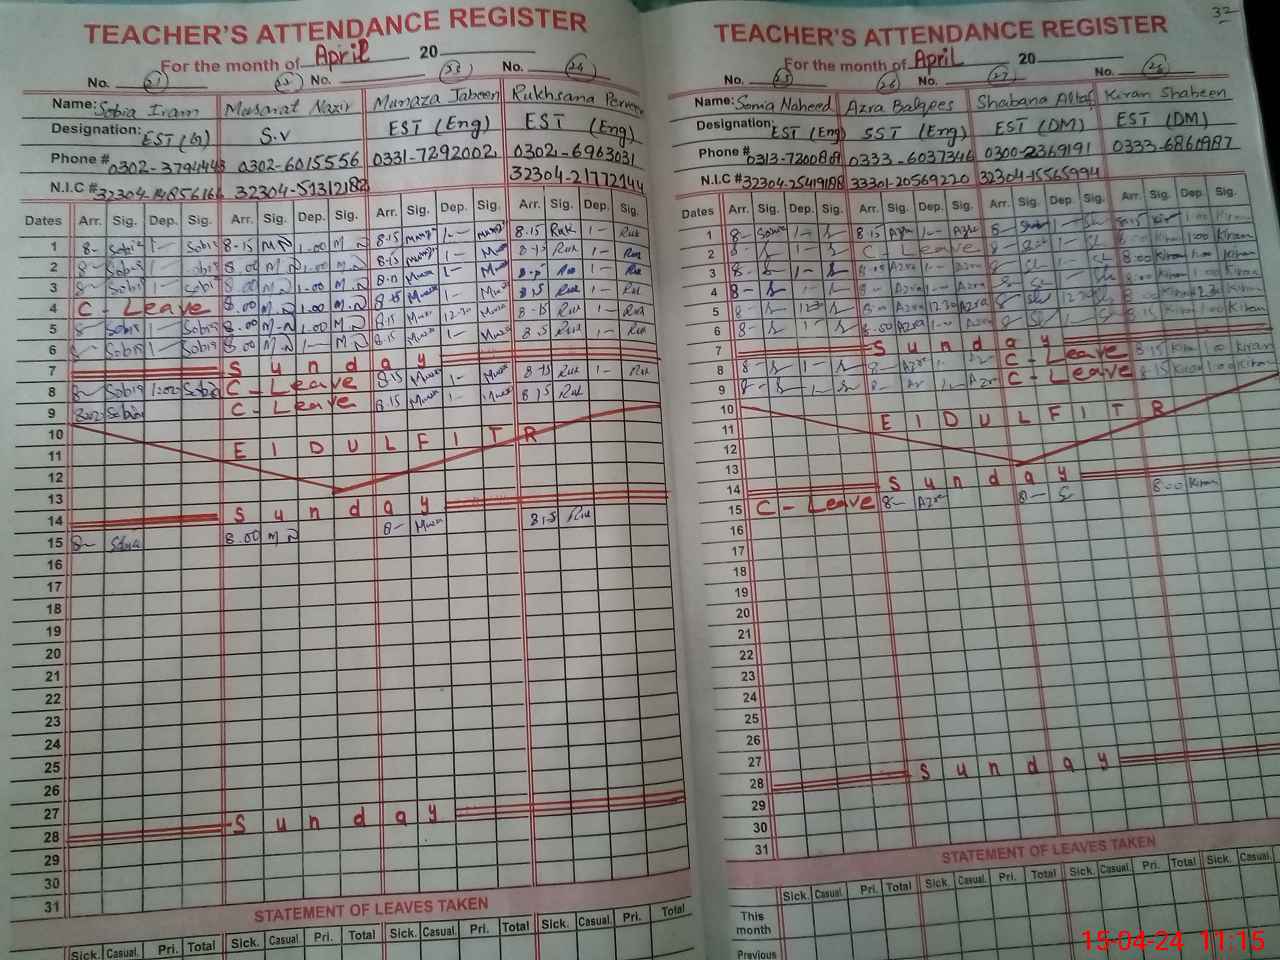 TEACHER'S ATTENDANCE REGISTER
For the month of April 20
No. 21 22 No. 23 No. 24
Name: Sobia Iram Musarat Nazir Munaza Jabeen Rukhsana Perveen
Designation: EST (G) S.V EST (Eng) EST (Eng)
Phone # 0302-3794443 0302-6015556 0331-7292002 0302-6963031
N.I.C # 32304-51312182 32304-21772144
Dates Arr. Sig. Dep. Sig. Arr. Sig. Dep. Sig. Arr. Sig. Dep. Sig. Arr. Sig. Dep. Sig.
1 8- Sobia 1- Sobia 8-15 M.N 1.00 M.N 8.15 1- 8.15 Ruk 1- Ruk
2 8- Sobia 1- Sobia 8.00 M.N 1.00 M.N 8.15 1- 8-15 Ruk 1- Ruk
3 8- Sobia 1- Sobia 8.00 M.N 1.00 M.N 1- 1- Ruk
4 C - Leave 8.00 M.N 1.00 M.N 8.15 1- 8.15 Ruk 1- Ruk
5 8- Sobia 1- Sobia 8.00 M-N 1.00 M.N 8.15 12-30 8-15 Ruk 1- Ruk
6 8- Sobia 1- Sobia 8.00 M.N 1- M.N 8.15 1- 8.15 Ruk 1- Ruk
7 Sunday
8 8- Sobia 1200 Sobia C - Leave 8.15 1- 8-15 Ruk 1- Ruk
9 Sobia C - Leave 8.15 1- 8.15 Ruk
10
11 EIDULFITR
12
13
14 Sunday
15 8- 8.00 M N 8- 8.15 Ruk
16
17
18
19
20
21
22
23
24
25
26
27
28 Sunday
29
30
31
STATEMENT OF LEAVES TAKEN
Sick. Casual. Pri. Total Sick. Casual. Pri. Total Sick. Casual. Pri. Total Sick. Casual. Pri. Total
32
TEACHER'S ATTENDANCE REGISTER
For the month of April 20
No. 25 26 No. 27 No. 28
Name: Sonia Naheed Azra Balqees Shabana Altaf Kiran Shaheen
Designation: EST (Eng) SST (Eng) EST (DM) EST (DM)
Phone # 0313-7200869 0333-6037346 0300-2369191 0333-6860987
N.I.C # 32304-25419188 33301-20569220 32304-15565994
Dates Arr. Sig. Dep. Sig. Arr. Sig. Dep. Sig. Arr. Sig. Dep. Sig. Arr. Sig. Dep. Sig.
1 8- 1- 8.15 Azra 1- Azra 8- 1- 8.15 Kiran 1.00 Kiran
2 8- 1- C - Leave 8- 1- 8.00 Kiran 1.00 Kiran
3 8- 1- Azra 1- Azra 8- 1- 8.00 Kiran 1.00 Kiran
4 8- 1- 8- Azra 1- Azra 8- 1- 8.00 Kiran 1.00 Kiran
5 8- 1230 8- Azra 12.30 Azra 8- 8.00 Kiran Kiran
6 8- 1- 8.00 Azra 1- Azra 8- 1- 8.15 Kiran 1.00 Kiran
7 Sunday
8 8- 1- 8- Azra 1- C - Leave 8.15 Kiran 1.00 Kiran
9 8- 1- 8- Azra C - Leave 8.15 Kiran 1.00 Kiran
10
11 EIDULFITR
12
13
14 Sunday
15 C - Leave 8- Azra 8- 8.00 Kiran
16
17
18
19
20
21
22
23
24
25
26
27
28 Sunday
29
30
31
STATEMENT OF LEAVES TAKEN
Sick. Casual. Pri. Total Sick. Casual. Pri. Total Sick. Casual. Pri. Total Sick. Casual.
This month
Previous
15-04-24 11:15